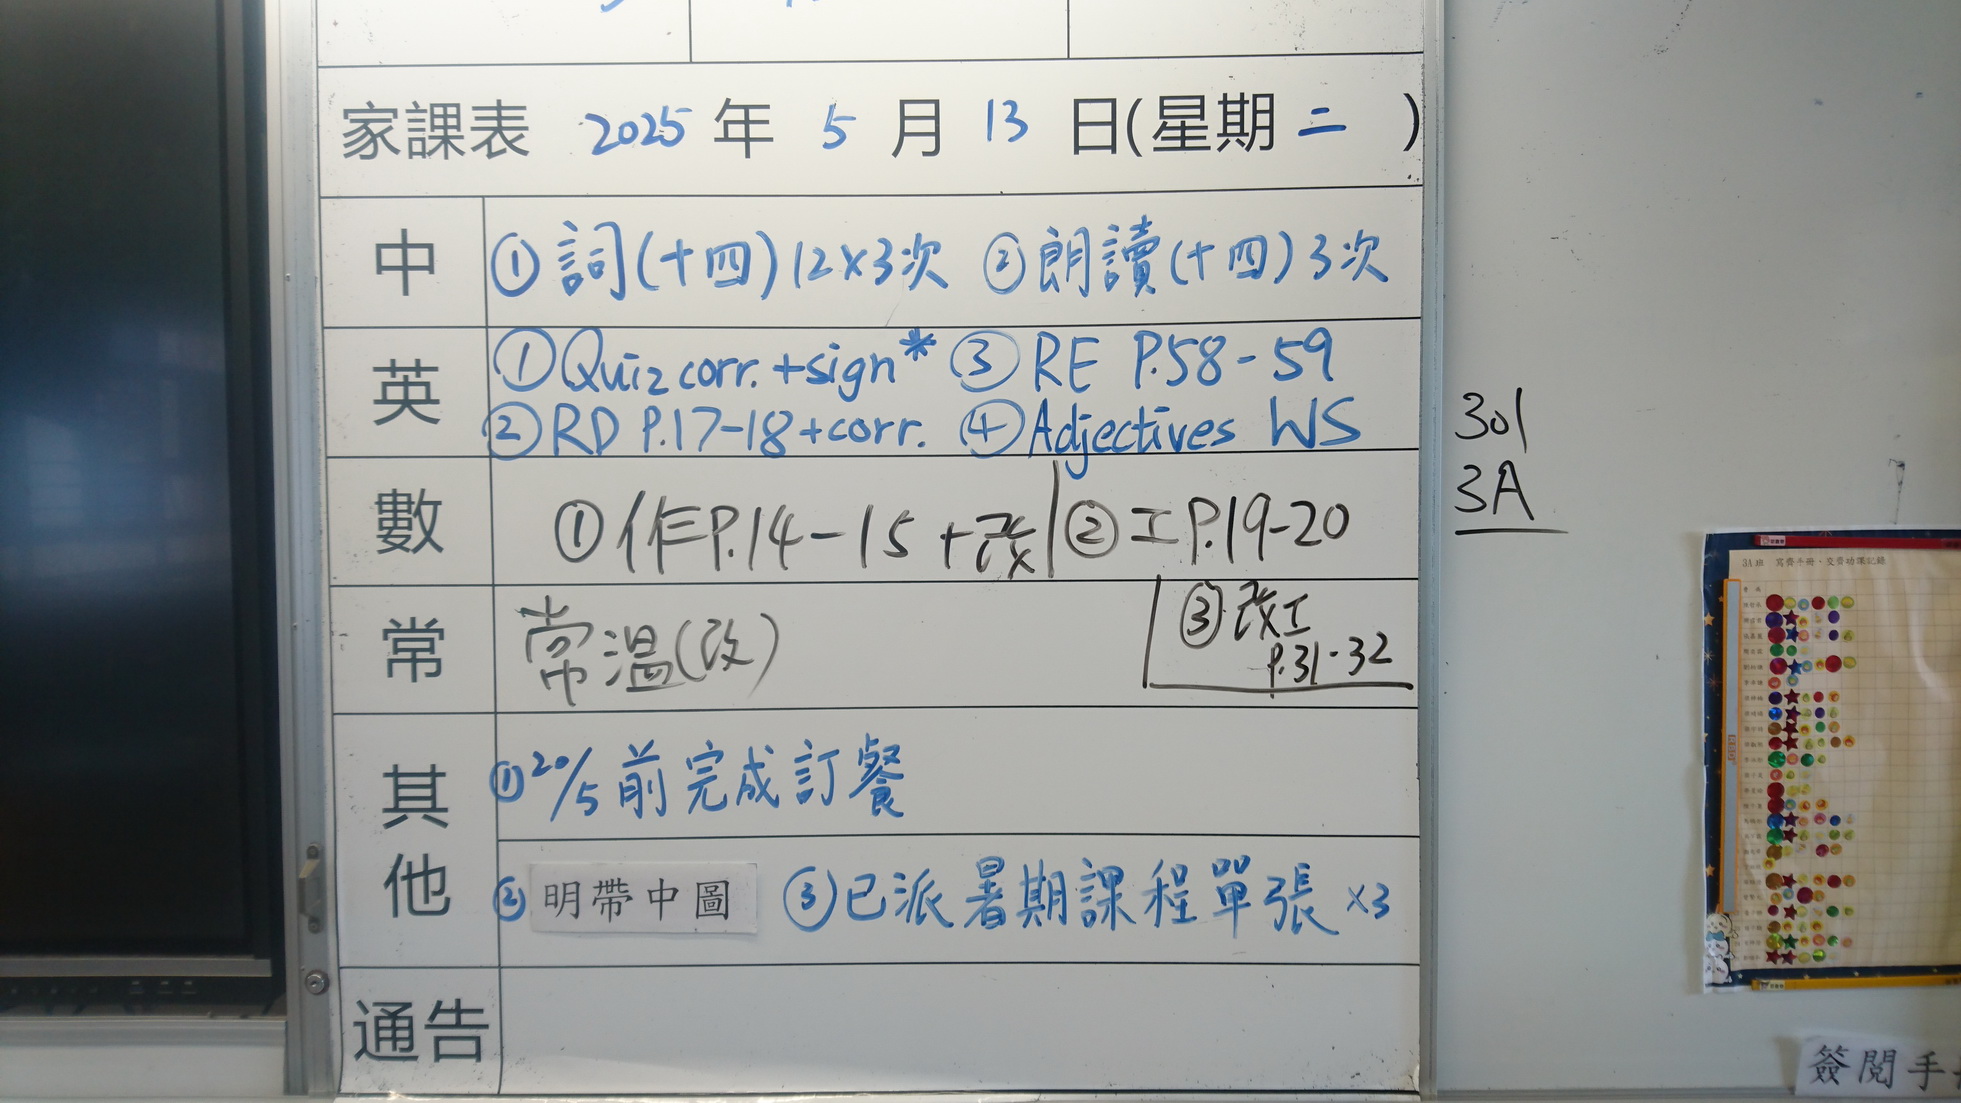 家課表 2025 年 5 月 13 日(星期 二 )
中 ① 詞(十四)12×3次 ② 朗讀(十四)3次
英 ① Quiz corr. + sign* ③ RE P.58-59
② RD P.17-18 + corr. ④ Adjectives WS
數 ① 作P.14-15 +改 ② 工P.19-20
常 常溫(改) ③ 改工
P.31-32
其他 ① 20/5 前完成訂餐
② 明帶中圖 ③ 已派暑期課程單張 ×3
通告
301
3A
3A班 寫齊手冊、交齊功課記錄
簽閱手